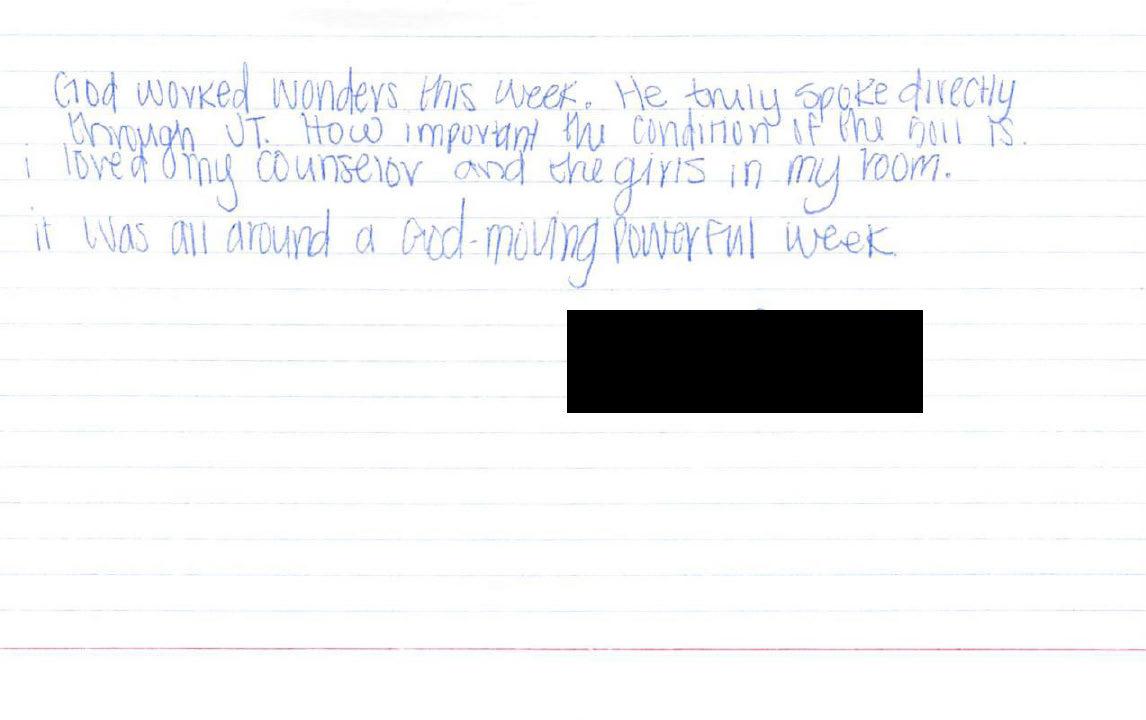 God worked wonders this week. He truly spoke directly
through JT. How important the condition of the soil is.
i loved my counselor and the girls in my room.
it was all around a God-moving powerful week.